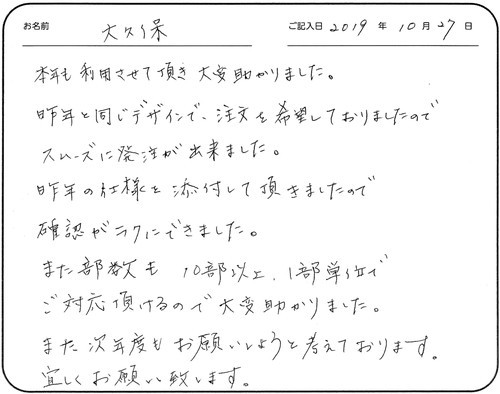 お名前 大久保 ご記入日 2019 年 10 月 27 日
本年も利用させて頂き大変助かりました。
昨年と同じデザインで、注文を希望しておりましたので
スムーズに発注が出来ました。
昨年の仕様を添付して頂きましたので
確認がラクにできました。
また部数も 10部以上、1部単位で
ご対応頂けるので大変助かりました。
また次年度もお願いしようと考えております。
宜しくお願い致します。